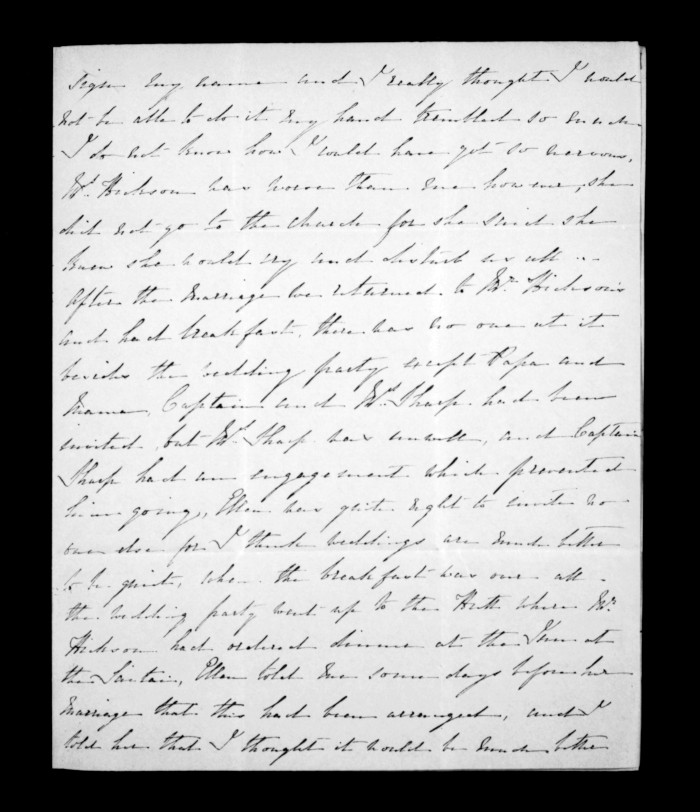 sign my name and I really thought I would
not be able to do it my hand trembled so much
I do not know how I could have got so nervous,
Mrs. Hickson was worse than me however, she
did not go to the church for she said she
knew she would cry and disturb us all ..
After the marriage we returned to Mr. Hickson's
and had breakfast, there was no one at it
besides the wedding party except Papa and
Mama, Captain and Mrs. Sharp had been
invited but Mrs. Sharp was unwell, and Captain
Sharp had an engagement which prevented
him going, Ellen was quite right to invite no
one else for I think weddings are much better
to be quiet, when the breakfast was over all
the wedding party went up to the Hutt where Mr.
Hickson had ordered dinner at the Inn at
the, Ellen told me some days before her
marriage that this had been arranged, and I
told her that I thought it would be much better